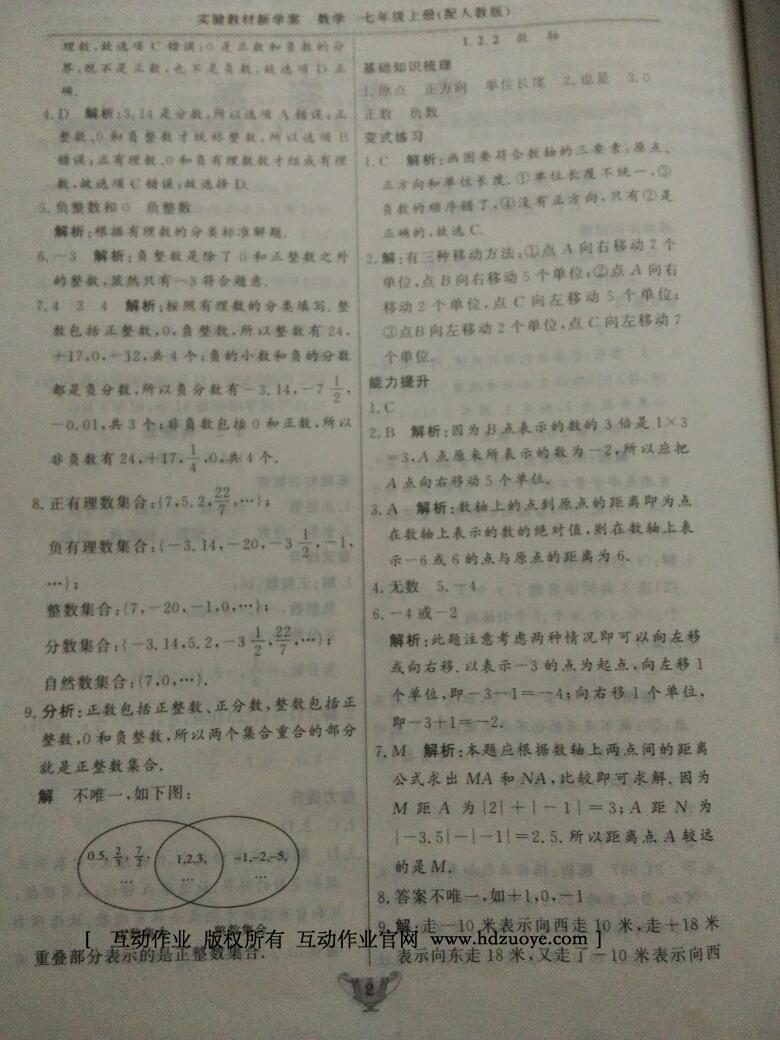 实验教材新学案 数学 七年级上册(配人教版)
理数,故选项C错误;0是正数和负数的分
界,既不是正数,也不是负数,故选项D正
确.
4.D 解析:3.14是分数,所以选项A错误;正
整数、0和负整数才统称整数,所以选项B
错误;正有理数、0和负有理数才组成有理
数,故选项C错误;故选择D.
5.负整数和0 负整数
解析:根据有理数的分类标准解题.
6.-3 解析:负整数是除了0和正整数之外
的整数,显然只有-3符合题意.
7.4 3 4 解析:按照有理数的分类填写.整
数包括正整数,0,负整数,所以整数有24,
+17,0,-12,共4个;负的小数和负的分数
都是负分数,所以负分数有-3.14,-7 1/2,
-0.01,共3个;非负数包括0和正数,所以
非负数有24,+17,1/4,0,共4个.
8.正有理数集合:{7,5.2,22/7,…};
负有理数集合:{-3.14,-20,-3 1/2,-1,
…};
整数集合:{7,-20,-1,0,…};
分数集合:{-3.14,5.2,-3 1/2,22/7,…};
自然数集合:{7,0,…}.
9.分析:正数包括正整数、正分数,整数包括正
整数,0和负整数,所以两个集合重合的部分
就是正整数集合.
解 不唯一,如下图:
0.5, 2/3, 7/2, … 1,2,3, … -1,-2,-5, …
整数集合
重叠部分表示的是正整数集合.
1.2.2 数轴
基础知识梳理
1.原点 正方向 单位长度 2.也是 3.0
正数 负数
变式练习
1.C 解析:画图要符合数轴的三要素:原点、
正方向和单位长度.①单位长度不统一,③
负数的顺序错了,④没有正方向,只有②是
正确的,故选C.
2.解:有三种移动方法:①点A向右移动7个
单位,点B向右移动5个单位;②点A向右
移动2个单位,点C向左移动5个单位;
③点B向左移动2个单位,点C向左移动7
个单位.
能力提升
1.C
2.B 解析:因为B点表示的数的3倍是1×3
=3,A点原来所表示的数为-2,所以应把
A点向右移动5个单位.
3.A 解析:数轴上的点到原点的距离即为点
在数轴上表示的数的绝对值,则在数轴上表
示-6或6的点与原点的距离为6.
4.无数 5.-4
6.-4或-2
解析:此题注意考虑两种情况即可以向左移
或向右移.以表示-3的点为起点,向左移1
个单位,即-3-1=-4;向右移1个单位,
即-3+1=-2.
7.M 解析:本题应根据数轴上两点间的距离
公式求出MA和NA,比较即可求解.因为
M距A为|2|+|-1|=3;A距N为
|-3.5|-|-1|=2.5.所以距离点A较远
的是M.
8.答案不唯一,如+1,0,-1
9.解:走-10米表示向西走10米,走+18米
表示向东走18米,又走了-10米表示向西
[ 互动作业 版权所有 互动作业官网 www.hdzuoye.com ]
2